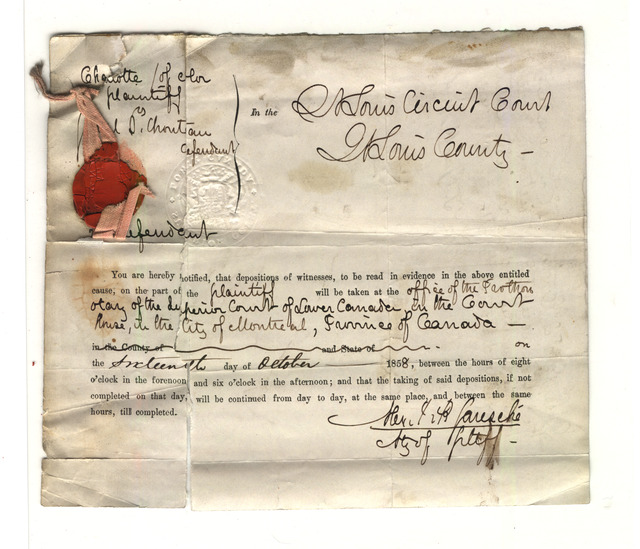 Charlotte (of color
plaintiff
vs
P. Chouteau
defendant
In the
St Louis Circuit Court
St Louis County —
defendant
You are hereby notified, that depositions of witnesses, to be read in evidence in the above entitled
cause, on the part of the plaintiff will be taken at the office of the Prothon
otary of the Superior Court of Lower Canada, in the Court
House, in the City of Montreal, Province of Canada —
in the County of and State of on
the Sixteenth day of October 1858, between the hours of eight
o'clock in the forenoon and six o'clock in the afternoon; and that the taking of said depositions, if not
completed on that day, will be continued from day to day, at the same place, and between the same
hours, till completed.
Garesché
Atty of pltff —